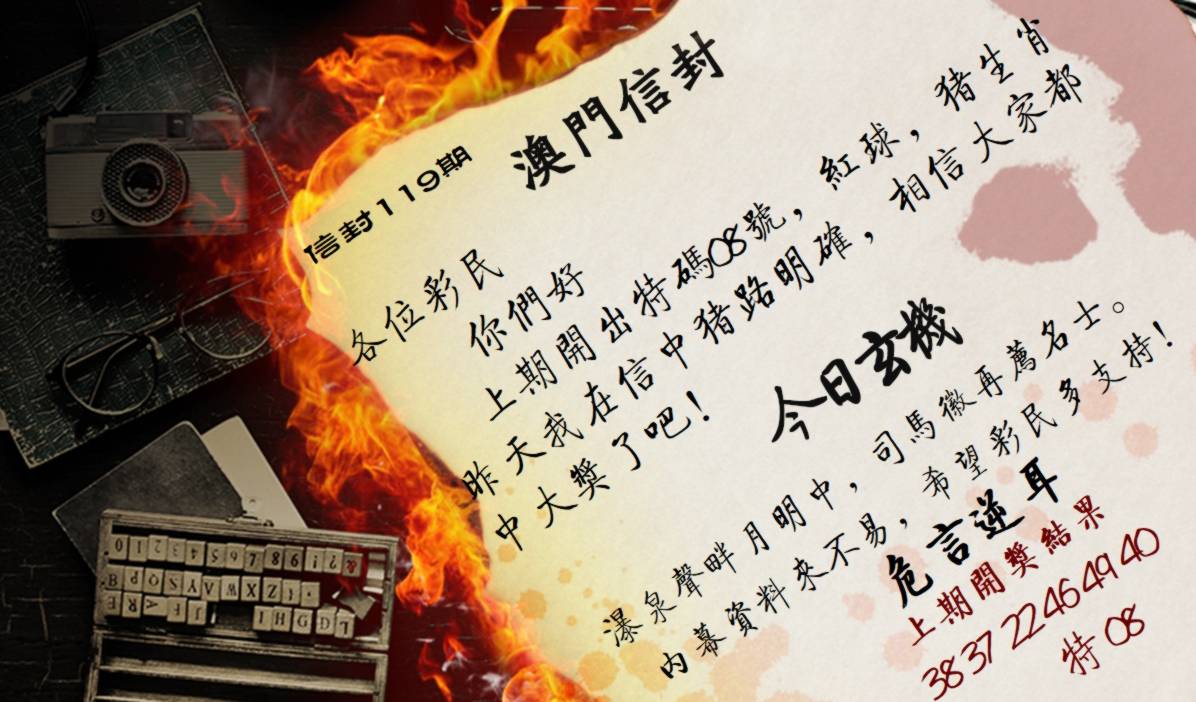 澳門信封
信封119期
各位彩民
你們好
上期開出特碼08號，紅球，猪生肖
昨天我在信中猪路明確，相信大家都
中大獎了吧！
今日玄機
瀑泉聲畔月明中，司馬徽再薦名士。
内幕資料來不易，希望彩民多支持！
危言逆耳
上期開獎結果
38 37 22 46 49 40
特 08
& ? ! 9 8 7 6 5 4 3 2 1 0